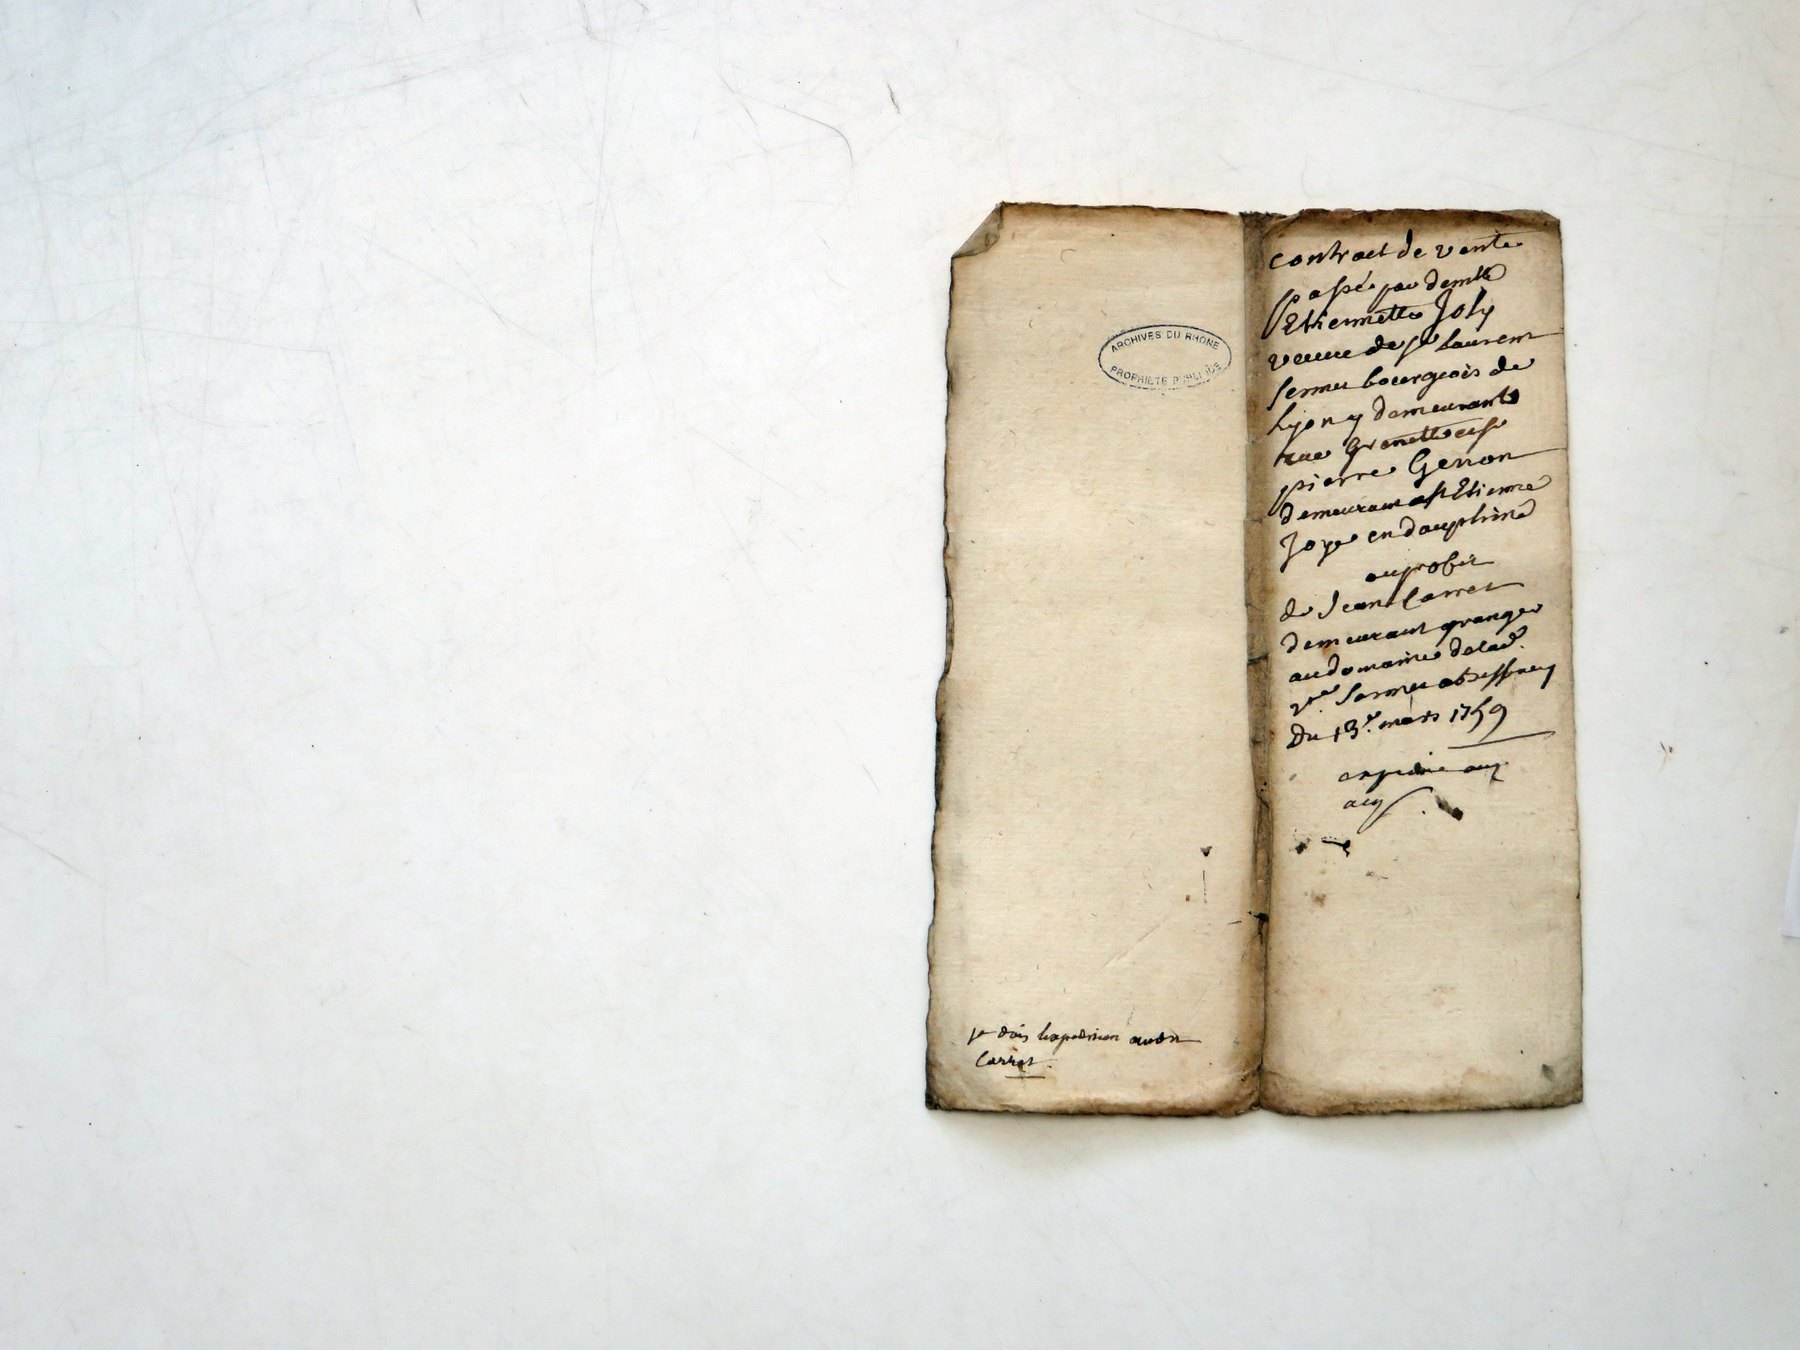 ARCHIVES DU RHONE
PROPRIETE PUBLIQUE
je dois lexpedition audit
Carret.
contract de vente
passé par demlle
Etiennette Joly
veuve de sr laurent
fermu bourgeois de
Lyon y demeurante
rue Grenette et sr
pierre Genon
demeurant a st Etienne
Joye en dauphiné
au profit
de Jean Carret
demeurant granger
au domaine de lad.
vve fermu
Du 13e. mars 1759
expedié aux
acq